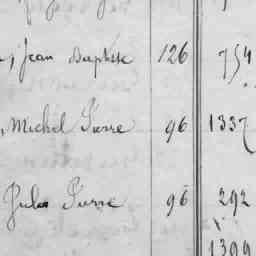 , Jean Baptiste 126 754
, Michel Pierre 96 1337
Jules Pierre 96 292
1399